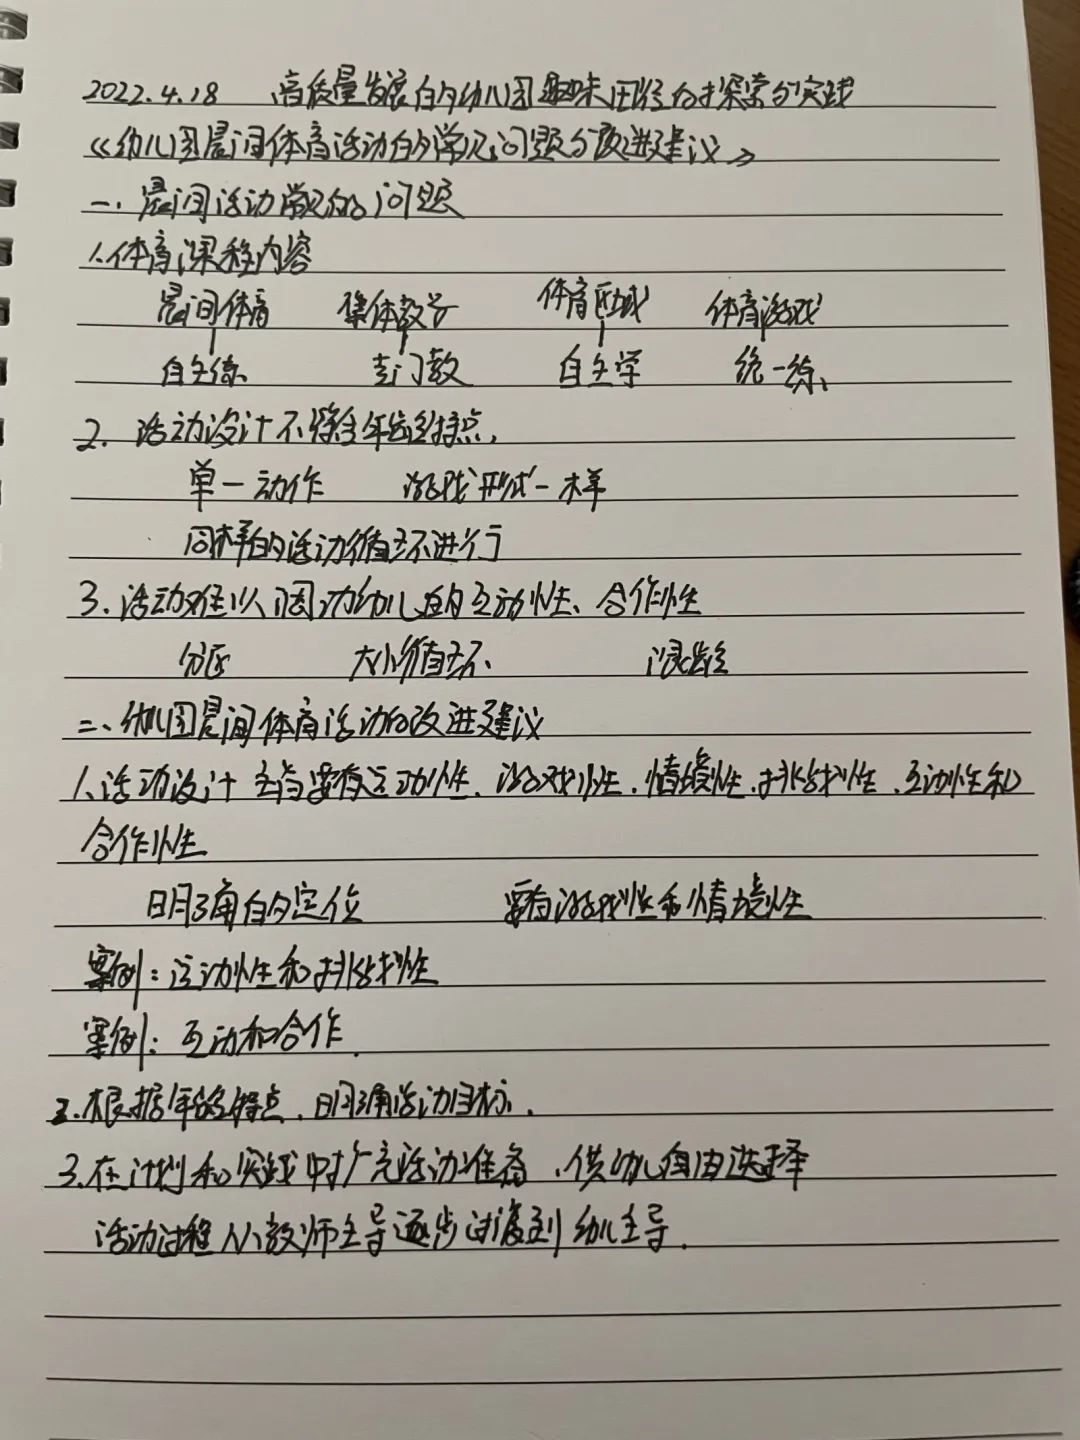 2022.4.18 高质量发展的幼儿园趣味田径的探索与实践
《幼儿园晨间体育活动的常见问题与改进建议》
一、晨间活动常见的问题
1.体育课程内容
晨间体育 集体教学 体育区域 体育游戏
自主练 专门教 自主学 统一练、
2. 活动设计不符合年龄段特点,
单一动作 游戏形式一样
同样的活动循环进行
3.活动难以调动幼儿的互动性、合作性
分区 大小循环 混龄
二、幼儿园晨间体育活动的改进建议
1.活动设计应当要有运动性、游戏性、情境性、挑战性、互动性和
合作性
明确的定位 要有游戏性和情境性
案例:运动性和挑战性
案例:互动和合作.
2.根据年龄特点、明确活动目标.
3.在计划和实践中扩充活动准备、供幼儿自由选择
活动过程从教师主导逐步过渡到幼儿主导.